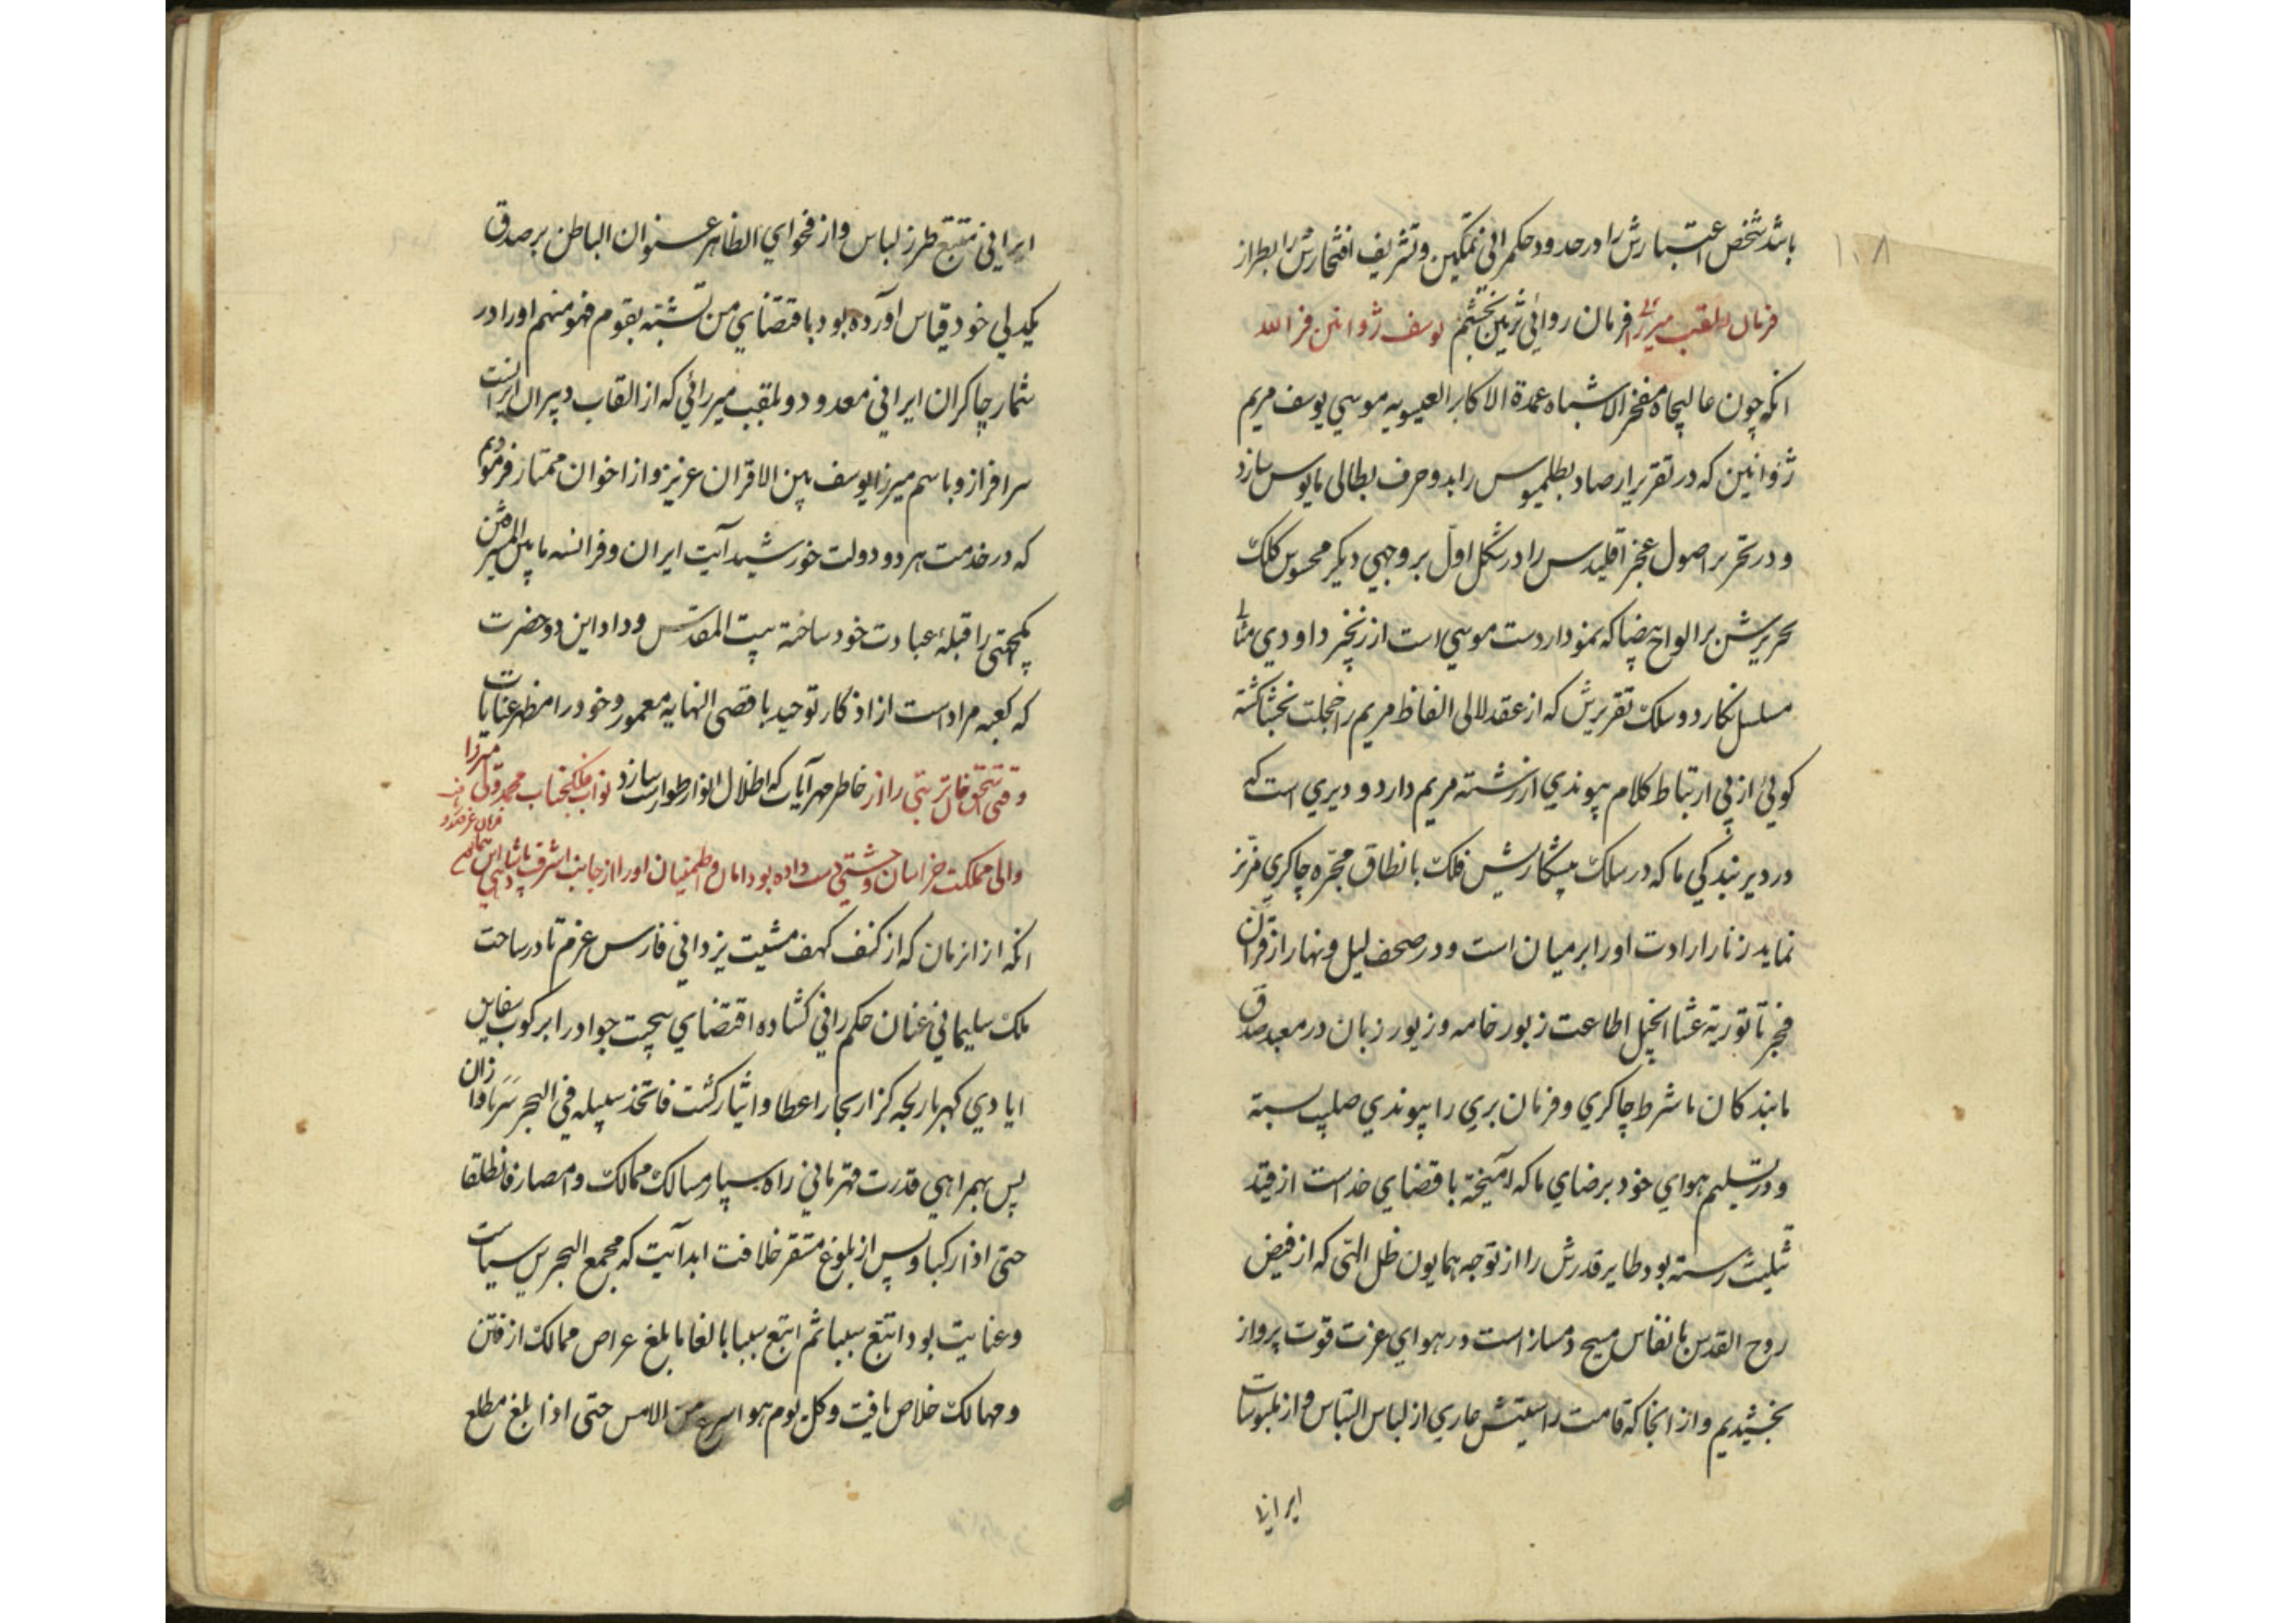 ۱۰۸
باشد شخص اعتبارش را در حدود حکمرانی تمکین و تشریف افتخارش را بطراز
فرمان لقب میرزائی فرمان روائی تزیین بخشیم یوسف ژوانین فرانسه
انکه چون عالیجاه مفخر الاشباه عمدة الاکابر العیسویه موسی یوسف مریم
ژوانین که در تقریر ارصاد بطلمیوس را بدو حرف بطالی مایوس سازد
و در تحریر اصول عجز اقلیدس را در شکل اول بر وجهی دیکر محسوس کلک
تحریرش بر الواح بیضا که نمودار دست موسی است از زنجیر داودی مثالی
مسلسل نکارد و سلک تقریرش که از عقد لالی الفاظ مریم را خجلت بخشا کشته
کوئی از پی ارتباط کلام پیوندی از رشته مریم دارد و دیری است که
در دیر بندکی ما که در سلک پیشکارش فلک با نطاق مجره چاکری مزنر
نماید زنار ارادت او را بر میان است و در صحف لیل و نهار از قرآن
فجر تا توریة عشا انجیل اطاعت زبور خامه و زیور زبان در معبد صدق
ما بندکان ما شرط چاکری و فرمان بری را پیوندی صلیب بسته
و در تسلیم هوای خود برضای ما که آمیخته با قضای خداست از قید
تثلیث رسته بود طایر قدرش را از توجه همایون ظل اللهی که از فیض
روح القدس با نفاس مسیح دمساز است در هوای عزت قوت پرواز
بخشیدیم و از انجا که قامت راستیش عاری از لباس التباس و از ملبوسات
ایرانی
ایرانی متتبع طرز لباس و از فحوای الظاهر عنوان الباطن بر صدق
یکدلی خود قیاس آورده بود باقتضای من تشبه بقوم فهو منهم او را در
شمار چاکران ایرانی معدود و بلقب میرزائی که از القاب دبیران ایرانست
سرافراز و باسم میرزا یوسف بین الاقران عزیز و از اخوان ممتاز فرمودیم
که در خدمت هر دو دولت خورشید آیت ایران و فرانسه ما بین المشرقین
یکجهتی را قبله عبادت خود ساخته بیت المقدس وداد این دو حضرت
که کعبه مراد است از اذکار توحید باقصی النهایه معمور و خود را مظهر عنایات
خاطر مهر آیات که اظلال انوار طوارست سازد نواب ملکجناب محمد ولی میرزا
وقتی اسحق خان تربتی را از
والی مملکت خراسان وحشتی دست داده بود امان و اطمینان او را از جانب اشرف پادشاهی
انکه از انزمان که از کنف کهف مشیت یزدانی فارس عزم ما در ساحت
ملک سلیمانی عنان حکمرانی کشاده اقتضای سجیت جواد را بر کوب سفاین
ایادی کهربار لجه کزار بحار اعطا و ایثار کشت فاتخذ سبیله فی البحر سربا و از ان
پس بهمراهی قدرت قهرمانی راه سپار مسالک ممالک و امصار فانطلقا
حتی اذا رکبا و پس از بلوغ مستقر خلافت ابد آیت که مجمع البحرین سیاست
و عنایت بود اتبع سببا ثم اتبع سببا بالغا ما بلغ عراص ممالک از فتن
و مهالک خلاص یافت و کل یوم هو اسرع من الامس حتی اذا بلغ مطلع